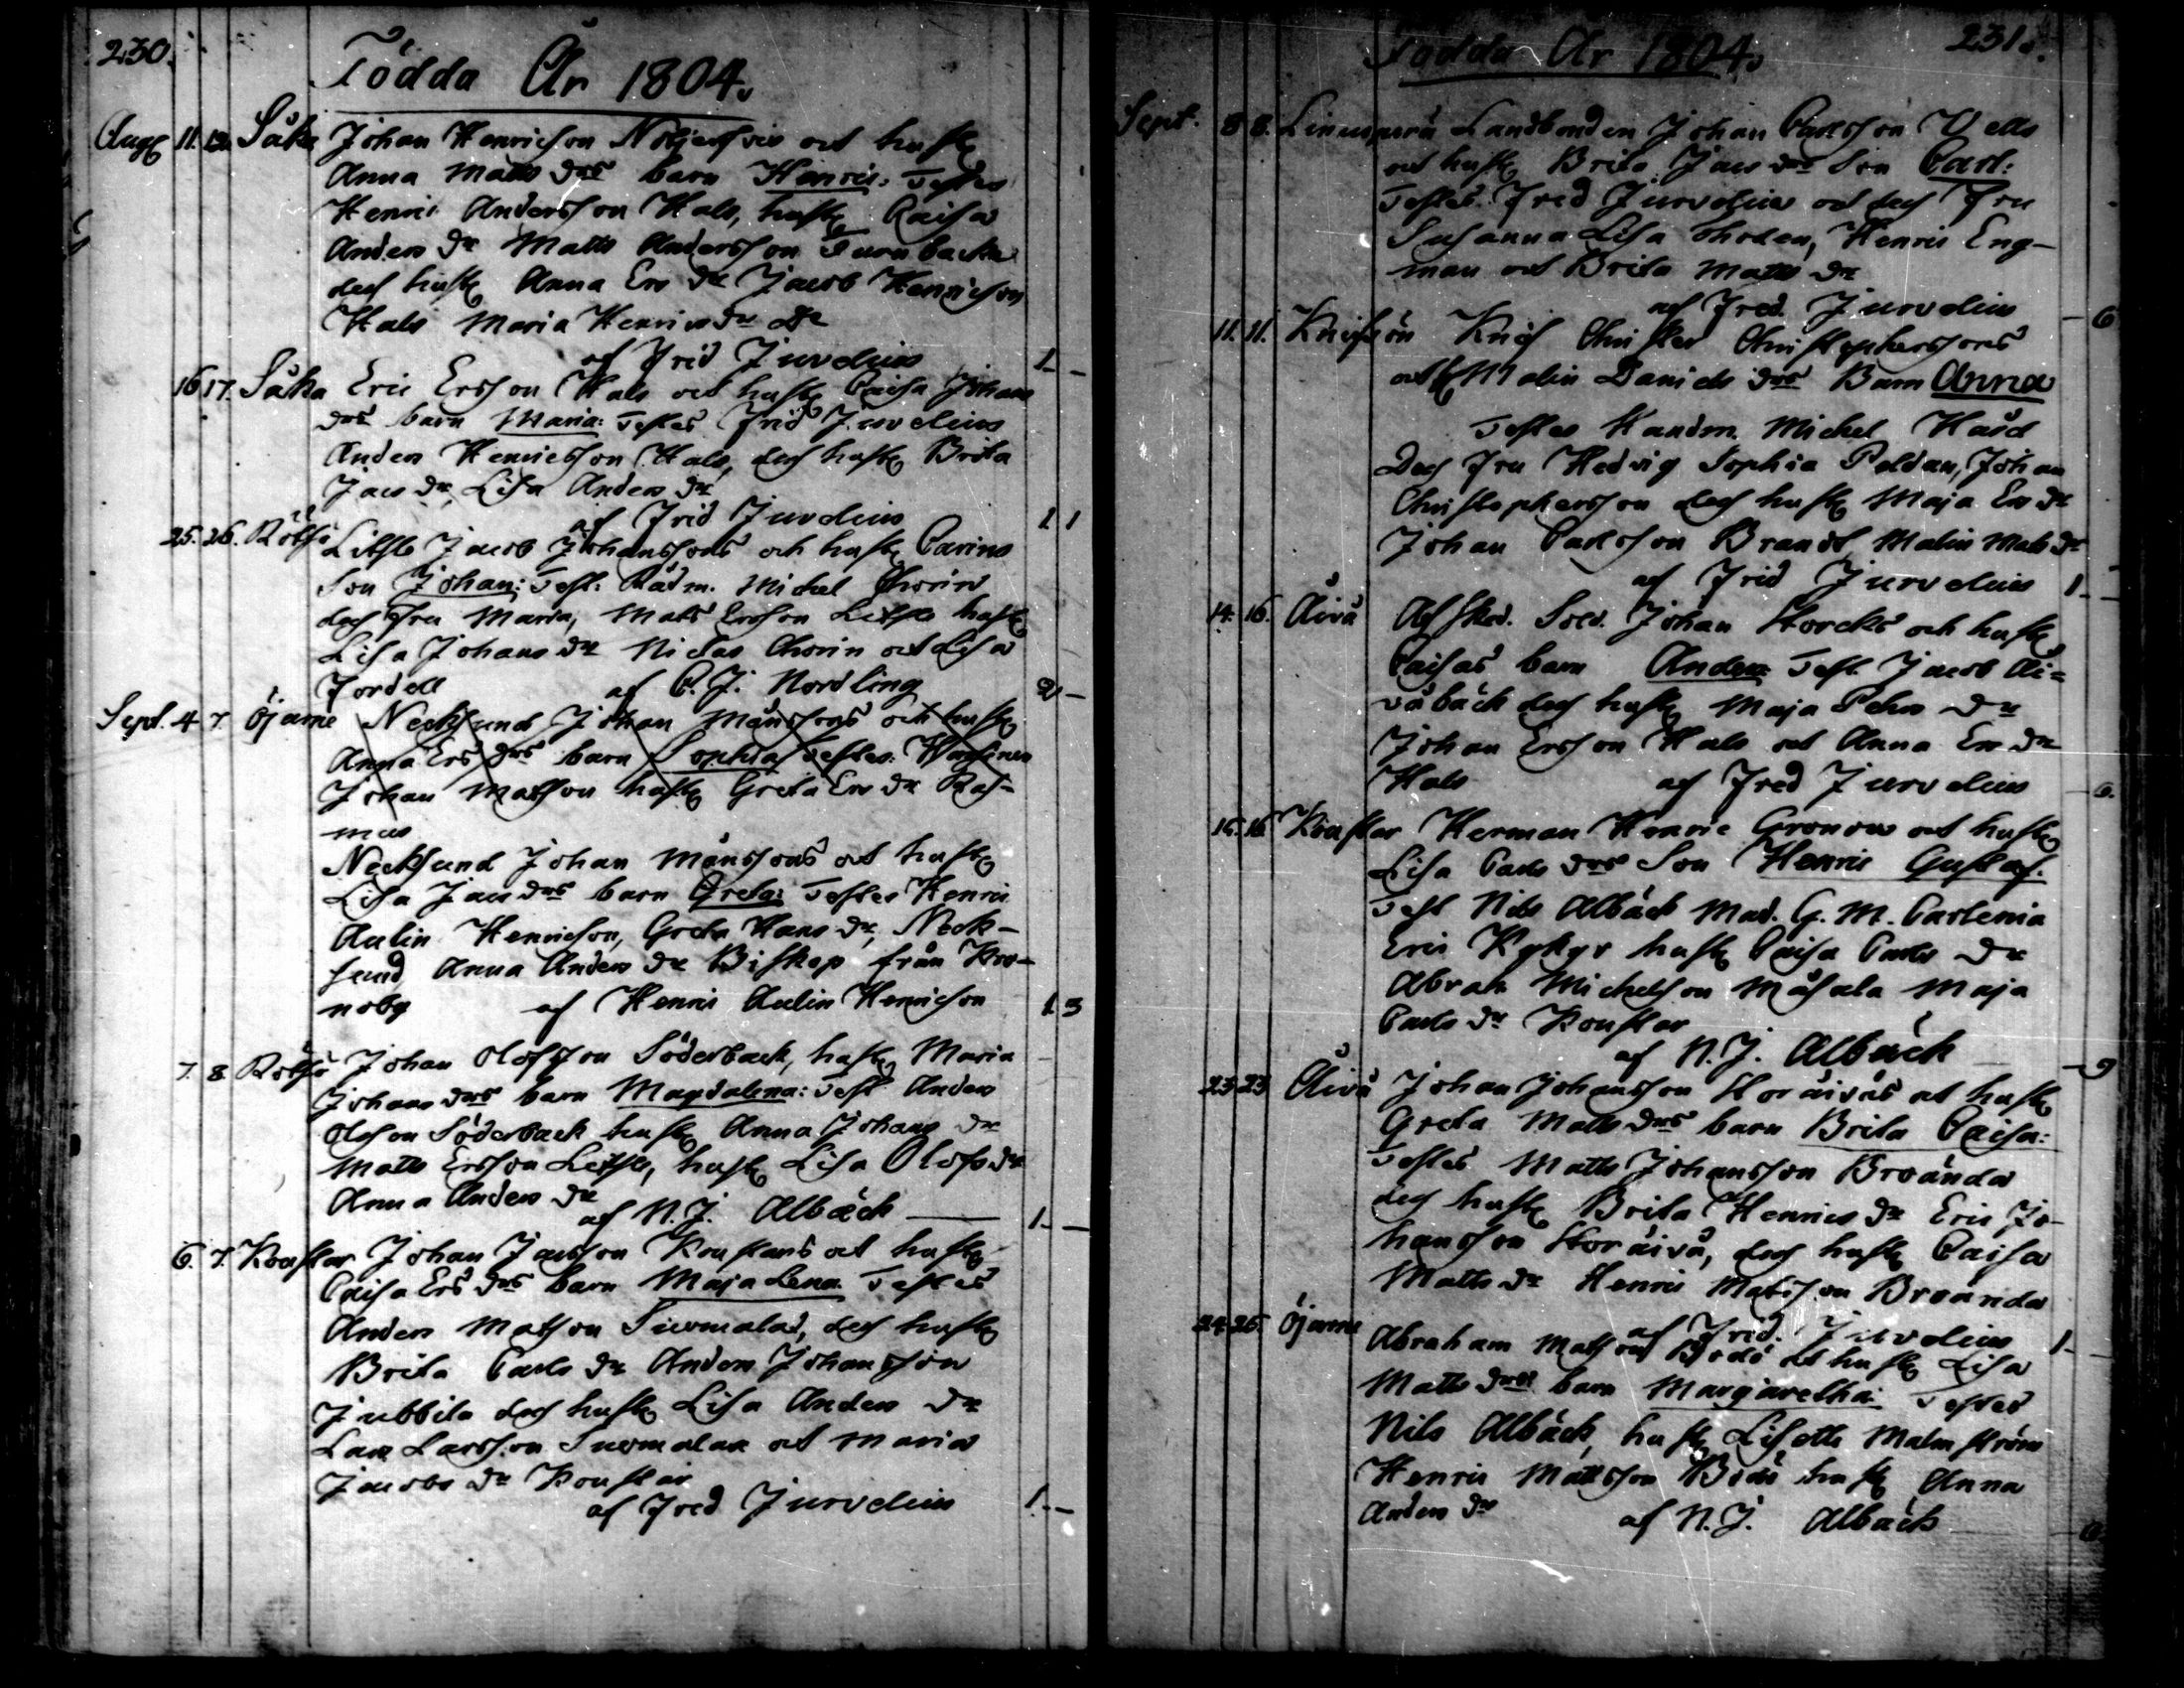 230.
Födda År 1804.
Aug 11. 12. Såka Johan Henricson och hust
Anna Matts drs barn Henric: Testes
Henric Andersson Hals, hust Caisa
Anders dr Matts Andersson Furubacka
dess hust Anna Ers dr Jacob Henricson
Hals Maria Henrics dr
af Fred Jurvelius 1 -
16 17. Såka Eric Ersson Hals och hust Caisa Johans
drs barn Maria: Testes Fred Jurvelius
Anders Henricsson Hals, dess hust Brita
Jacs dr, Lisa Anders dr
af Fred Jurvelius 1 1
25. 26. Rödsö Jacob Johanssons och hust Carins
Son Johan: Test: Rådm. Michel Chorin
dess Fru Maria, Mats Ersson hust
Lisa Johans dr Niclas Chorin och Lisa
Fordell af C. J. Nordling 2 -
Sept. 4 7. Öjarne Necksund Johan Månssons och hust
Anna Ers drs barn Sophia Testes:
Johan Matsson hust Greta Ers dr Ras-
mus
Necksund Johan Månssons och hust
Lisa Jacs drs barn Greta: Testes Henric
Aulin Henricson, Greta Hans dr, Neck-
sund Anna Anders dr Biskop från Kro-
noby af Henric Aulin Henricson 1 3
7. 8 Rödsö Johan Olofsson Söderback, hust Maria
Johans drs barn Magdalena: Test Anders
Olofson Söderback hust Anna Johans dr
Matts Ersson hust Lisa Olofs dr
Anna Anders dr
af N. J. Albäck 1 -
6. 7. Kouslar Johan Jacsson och hust
Caisa Ers drs barn Maja Lena Testes
Anders Matson Suomalas, dess hust
Brita Carls dr Anders Johansson
Jubbila dess hust Lisa Anders dr
Lars Larsson Suomalax och Maria
Jacobs dr
af Fred Jurvelius 1 -
231.
Födda År 1804.
Sept. 8 8. Linnusperä Landbonden Johan Carlsson
och hust Brita Jacs drs Son Carl:
Testes. Fred Jurvelius och dess Fru
Susanna Lisa Thoden, Henric Eng-
man och Brita Matts dr
af Fred. Jurvelius - 6
11. 11. Knifsön Knif Christer Christophersons
och H Malin Daniels drs Barn Anna
Testes Handm. Michel Hård
Dess Fru Hedvig Sophia Peldan, Johan
Christophersson dess hust Maja Ers dr
Johan Carlsson Brandt Malin Mats dr
af Fred Jurvelius 1 -
14. 16. Åivå Afsked. Sold. Johan Storcks och hust
Caisas barn Anders Test Jacob Åi-
våbäck dess hust Maja Pehrs dr
Johan Ersson Hals och Anna Ers dr
Hals af Fred Jurvelius - 6.
15. 16 Kouslar Herman Henric Gronow och hust
Lisa Carls drs Son Henric Gustaf.
Test Nils Albäck Mad. G. M. Carlenia
Eric Kykyr hust Caisa Carls dr
Abrah Michelson Måsala Maja
Carls dr
af N. J. Albäck - 9
23 23 Åivå Johan Johansson Storåivås och hust
Greta Matts drs barn Brita Caisa:
Testes Matts Johansson Broända
dess hust Brita Henrics dr Eric Jo-
hansson Storåivå, dess hust Caisa
Matts dr Henric Matsson Broända
af Fred. Jurvelius 1 -
24 25. Öjarne Abraham Matsons Bodö och hust Lisa
Matts drs barn Margaretha: Testes
Nils Albäck, hust Lisette Malmström
Henric Mattsson Bodö hust Anna
Anders dr af N. J. Albäck